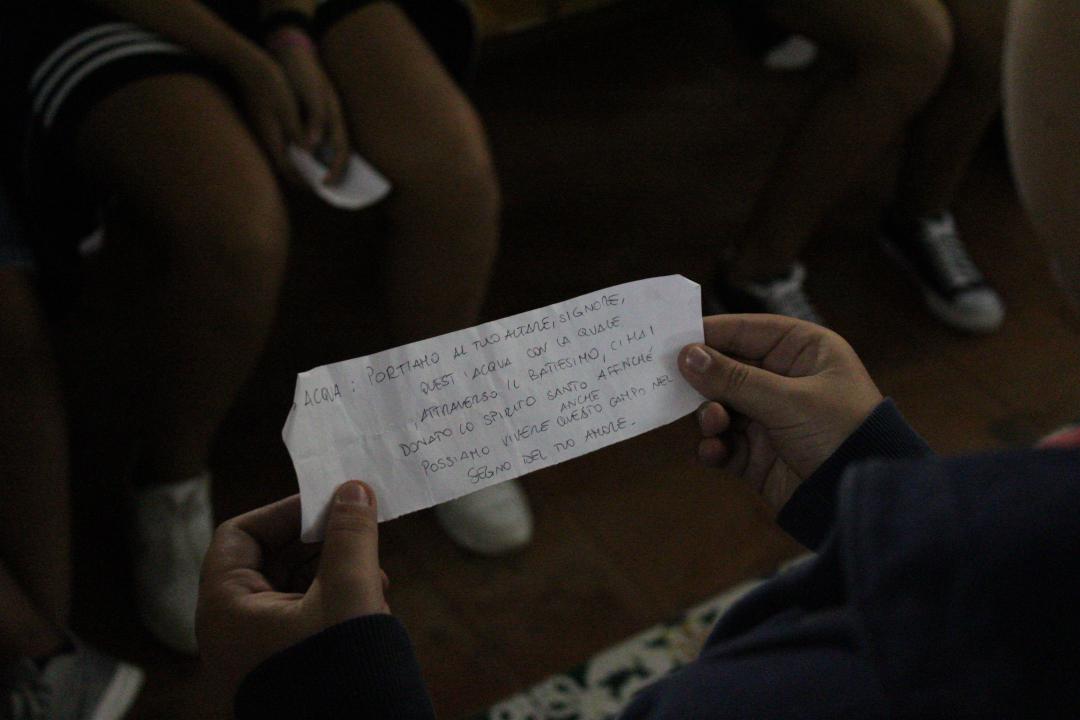 ACQUA: PORTIAMO AL TUO ALTARE, SIGNORE,
QUEST'ACQUA CON LA QUALE
, ATTRAVERSO IL BATTESIMO, CI HAI
DONATO LO SPIRITO SANTO AFFINCHÉ
POSSIAMO VIVERE ANCHE QUESTO CAMPO NEL
SEGNO DEL TUO AMORE.